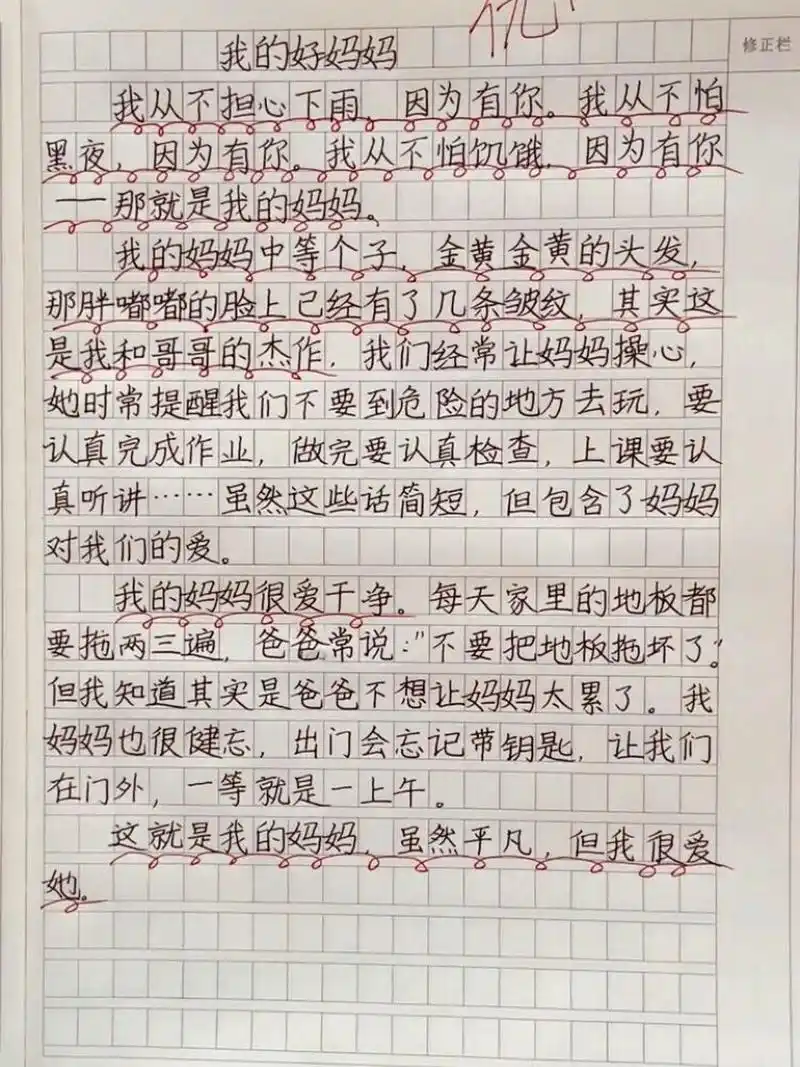 优
修正栏
我的好妈妈
我从不担心下雨，因为有你。我从不怕
黑夜，因为有你。我从不怕饥饿，因为有你
——那就是我的妈妈。
我的妈妈中等个子，金黄金黄的头发，
那胖嘟嘟的脸上已经有了几条皱纹，其实这
是我和哥哥的杰作，我们经常让妈妈操心，
她时常提醒我们不要到危险的地方去玩，要
认真完成作业，做完要认真检查，上课要认
真听讲……虽然这些话简短，但包含了妈妈
对我们的爱。
我的妈妈很爱干净。每天家里的地板都
要拖两三遍，爸爸常说："不要把地板拖坏了"
但我知道其实是爸爸不想让妈妈太累了。我
妈妈也很健忘，出门会忘记带钥匙，让我们
在门外，一等就是一上午。
这就是我的妈妈，虽然平凡，但我很爱
她。